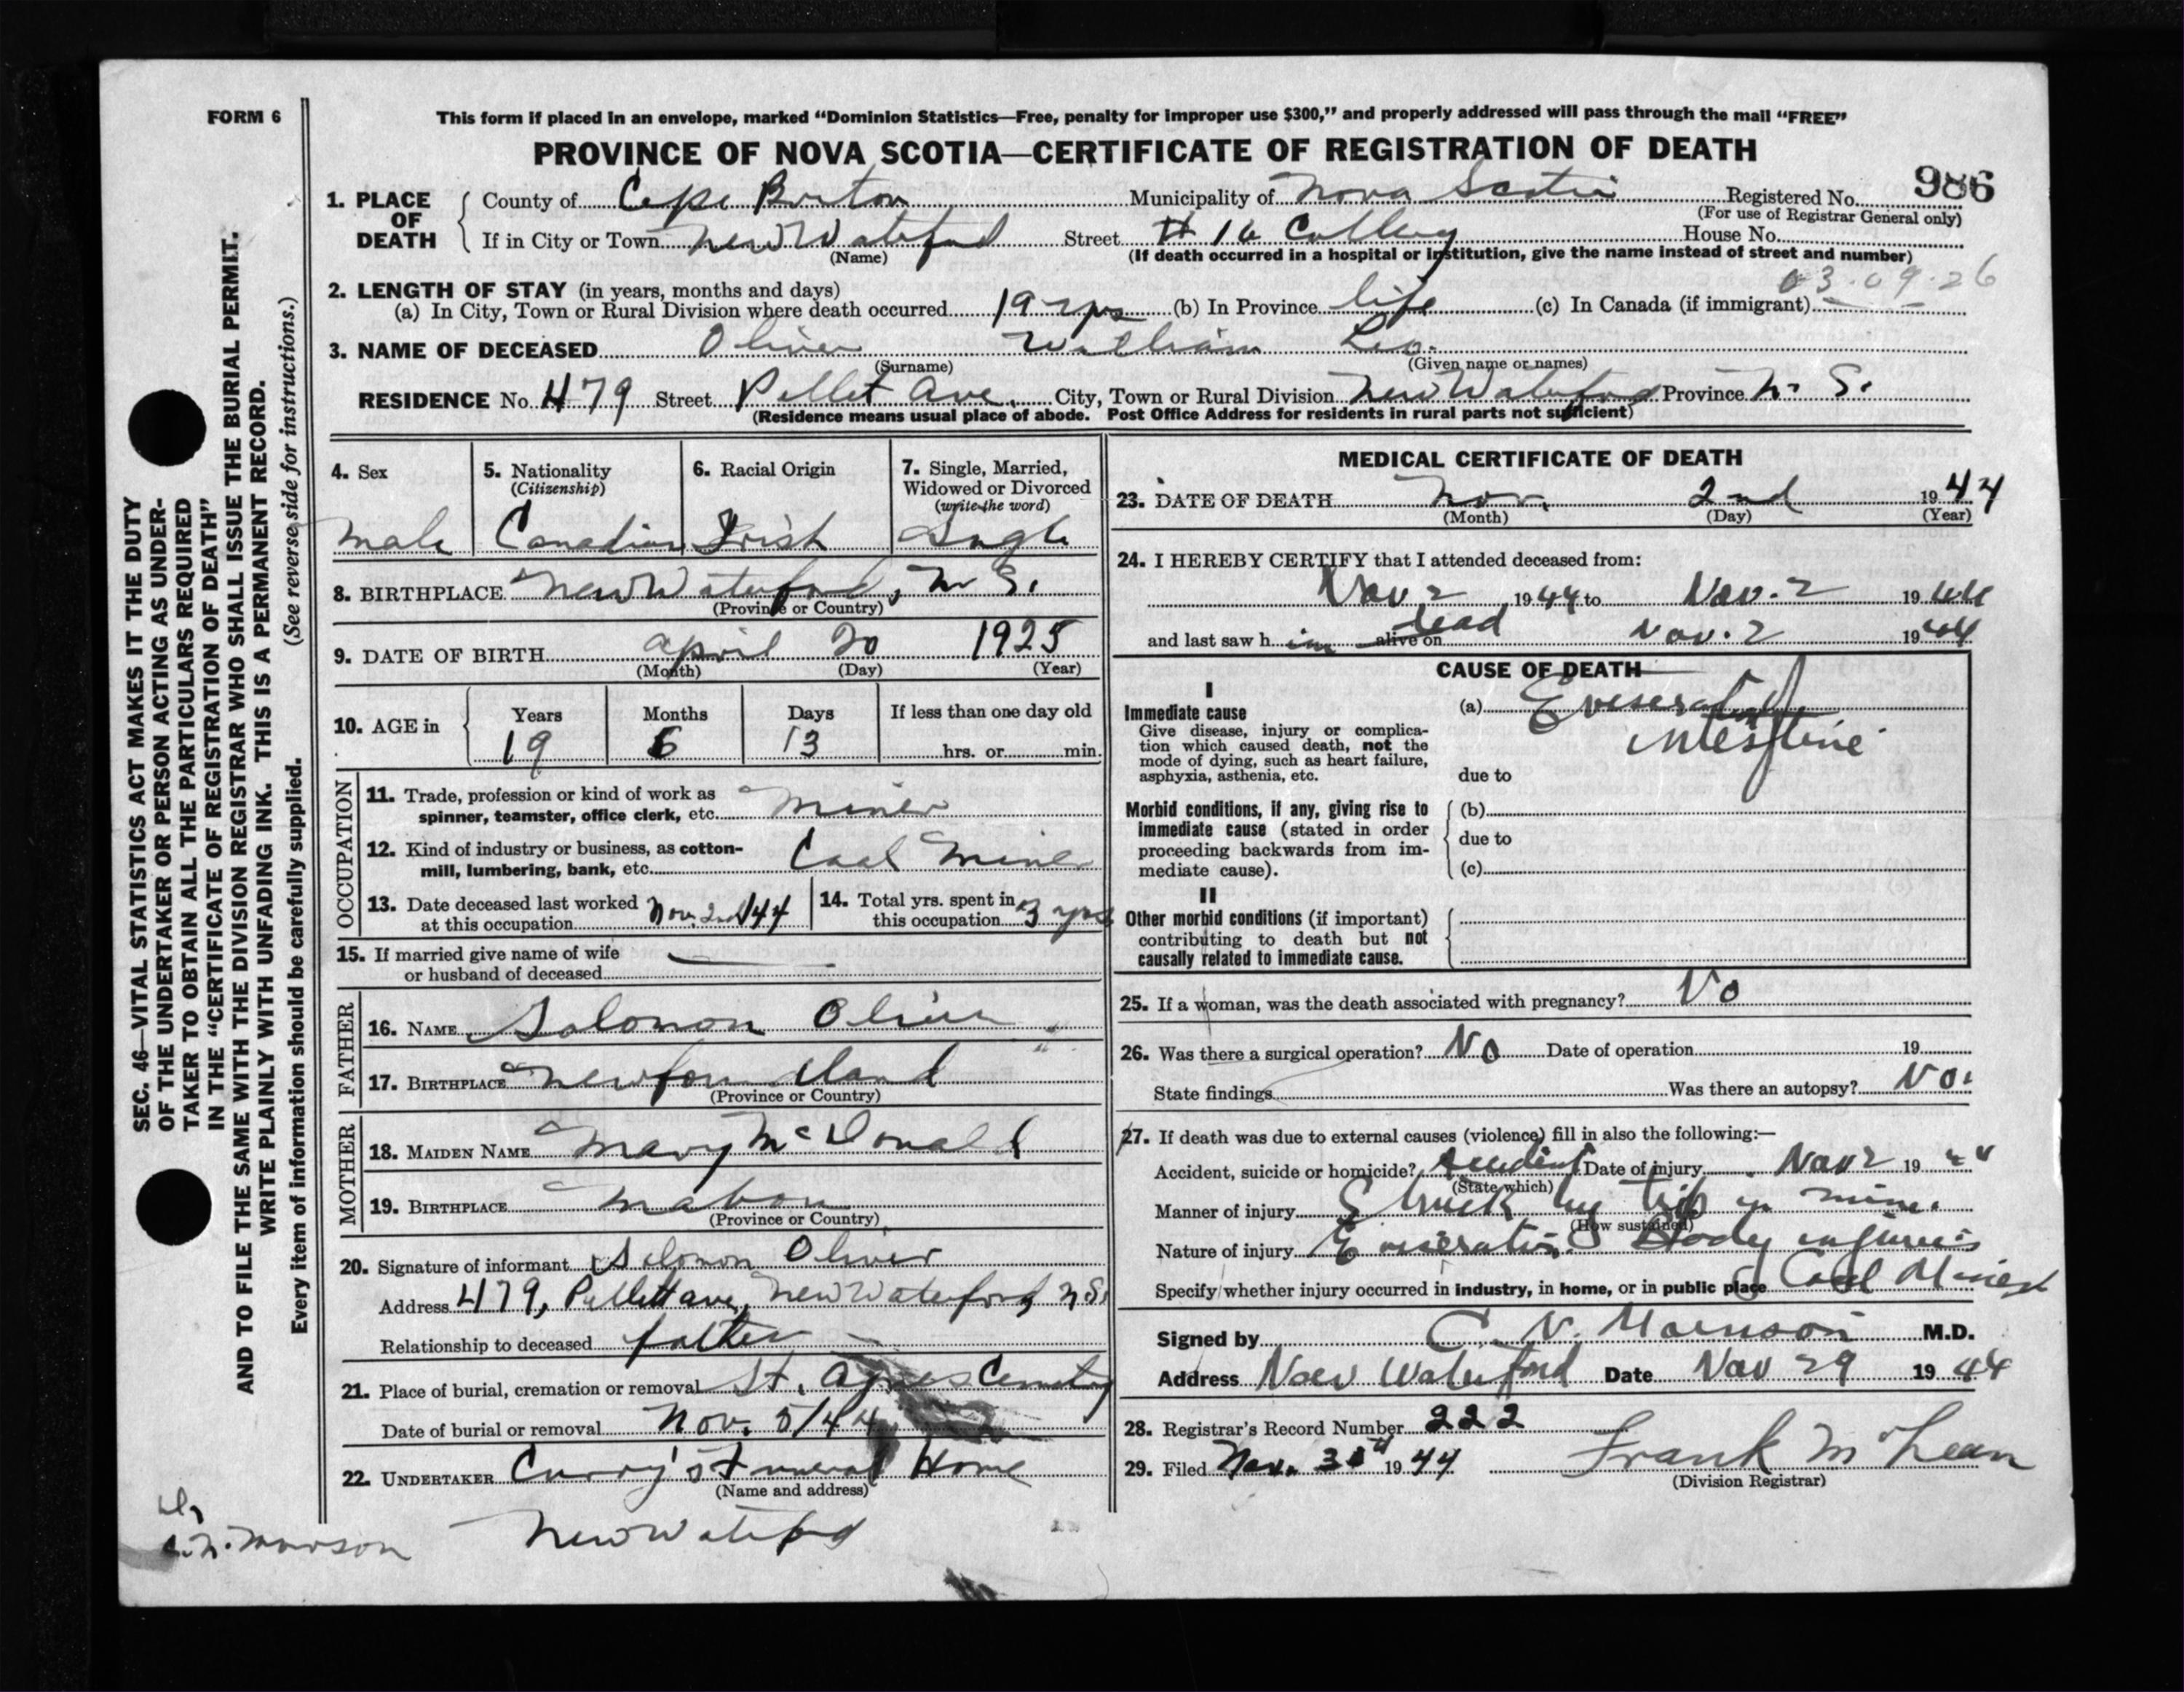 FORM 6
This form if placed in an envelope, marked “Dominion Statistics—Free, penalty for improper use $300,” and properly addressed will pass through the mail “FREE”
PROVINCE OF NOVA SCOTIA—CERTIFICATE OF REGISTRATION OF DEATH
986
1. PLACE OF DEATH
County of Cape Breton Municipality of Nova Scotia Registered No.
(For use of Registrar General only)
If in City or Town New Waterford Street # 16 Colliery House No.
(Name) (If death occurred in a hospital or institution, give the name instead of street and number)
03.09.26
2. LENGTH OF STAY (in years, months and days)
(a) In City, Town or Rural Division where death occurred 19 yrs (b) In Province life (c) In Canada (if immigrant)
3. NAME OF DECEASED Oliver William Leo.
(Surname) (Given name or names)
RESIDENCE No. 479 Street Pellet Ave. City, Town or Rural Division New Waterford Province N. S.
(Residence means usual place of abode. Post Office Address for residents in rural parts not sufficient)
4. Sex
Male
5. Nationality
(Citizenship)
Canadian
6. Racial Origin
Irish
7. Single, Married,
Widowed or Divorced
(write the word)
Single
8. BIRTHPLACE New Waterford, N. S.
(Province or Country)
9. DATE OF BIRTH April 20 1925
(Month) (Day) (Year)
10. AGE in
Years Months Days If less than one day old
19 6 13 hrs. or min.
OCCUPATION
11. Trade, profession or kind of work as
spinner, teamster, office clerk, etc. Miner
12. Kind of industry or business, as cotton-
mill, lumbering, bank, etc. Coal Mine
13. Date deceased last worked
at this occupation Nov. 2nd/44
14. Total yrs. spent in
this occupation 3 yrs
15. If married give name of wife
or husband of deceased
FATHER
16. NAME Solomon Oliver
17. BIRTHPLACE Newfoundland
(Province or Country)
MOTHER
18. MAIDEN NAME Mary McDonald
19. BIRTHPLACE Mabou
(Province or Country)
20. Signature of informant Solomon Oliver
Address 479, Pellett ave, New Waterford N S.
Relationship to deceased father
21. Place of burial, cremation or removal St. Agnes Cemetery
Date of burial or removal Nov. 5/44
22. UNDERTAKER Curry's Funeral Home
(Name and address)
New Waterford
MEDICAL CERTIFICATE OF DEATH
23. DATE OF DEATH Nov. 2nd 1944
(Month) (Day) (Year)
24. I HEREBY CERTIFY that I attended deceased from:
Nov 2 1944 to Nov. 2 1944
and last saw him alive on dead Nov. 2 1944
CAUSE OF DEATH
I
Immediate cause
Give disease, injury or complica-
tion which caused death, not the
mode of dying, such as heart failure,
asphyxia, asthenia, etc.
(a) Eviserated
intestine
due to
Morbid conditions, if any, giving rise to
immediate cause (stated in order
proceeding backwards from im-
mediate cause).
(b)
due to
(c)
II
Other morbid conditions (if important)
contributing to death but not
causally related to immediate cause.
25. If a woman, was the death associated with pregnancy? No
26. Was there a surgical operation? No Date of operation 19
State findings Was there an autopsy? No.
27. If death was due to external causes (violence) fill in also the following:—
Accident, suicide or homicide? Accident Date of injury Nov 2 19 " "
(State which)
Manner of injury Struck by trip in mine.
(How sustained)
Nature of injury Evisceration Body injuries
Specify whether injury occurred in industry, in home, or in public place Coal Mines
Signed by C. N. M.D.
Address New Waterford Date Nov 29 1944
28. Registrar's Record Number 222
29. Filed Nov. 30th 1944 Frank McLean
(Division Registrar)
SEC. 46—VITAL STATISTICS ACT MAKES IT THE DUTY
OF THE UNDERTAKER OR PERSON ACTING AS UNDER-
TAKER TO OBTAIN ALL THE PARTICULARS REQUIRED
IN THE “CERTIFICATE OF REGISTRATION OF DEATH”
AND TO FILE THE SAME WITH THE DIVISION REGISTRAR WHO SHALL ISSUE THE BURIAL PERMIT.
WRITE PLAINLY WITH UNFADING INK. THIS IS A PERMANENT RECORD.
(See reverse side for instructions.)
Every item of information should be carefully supplied.